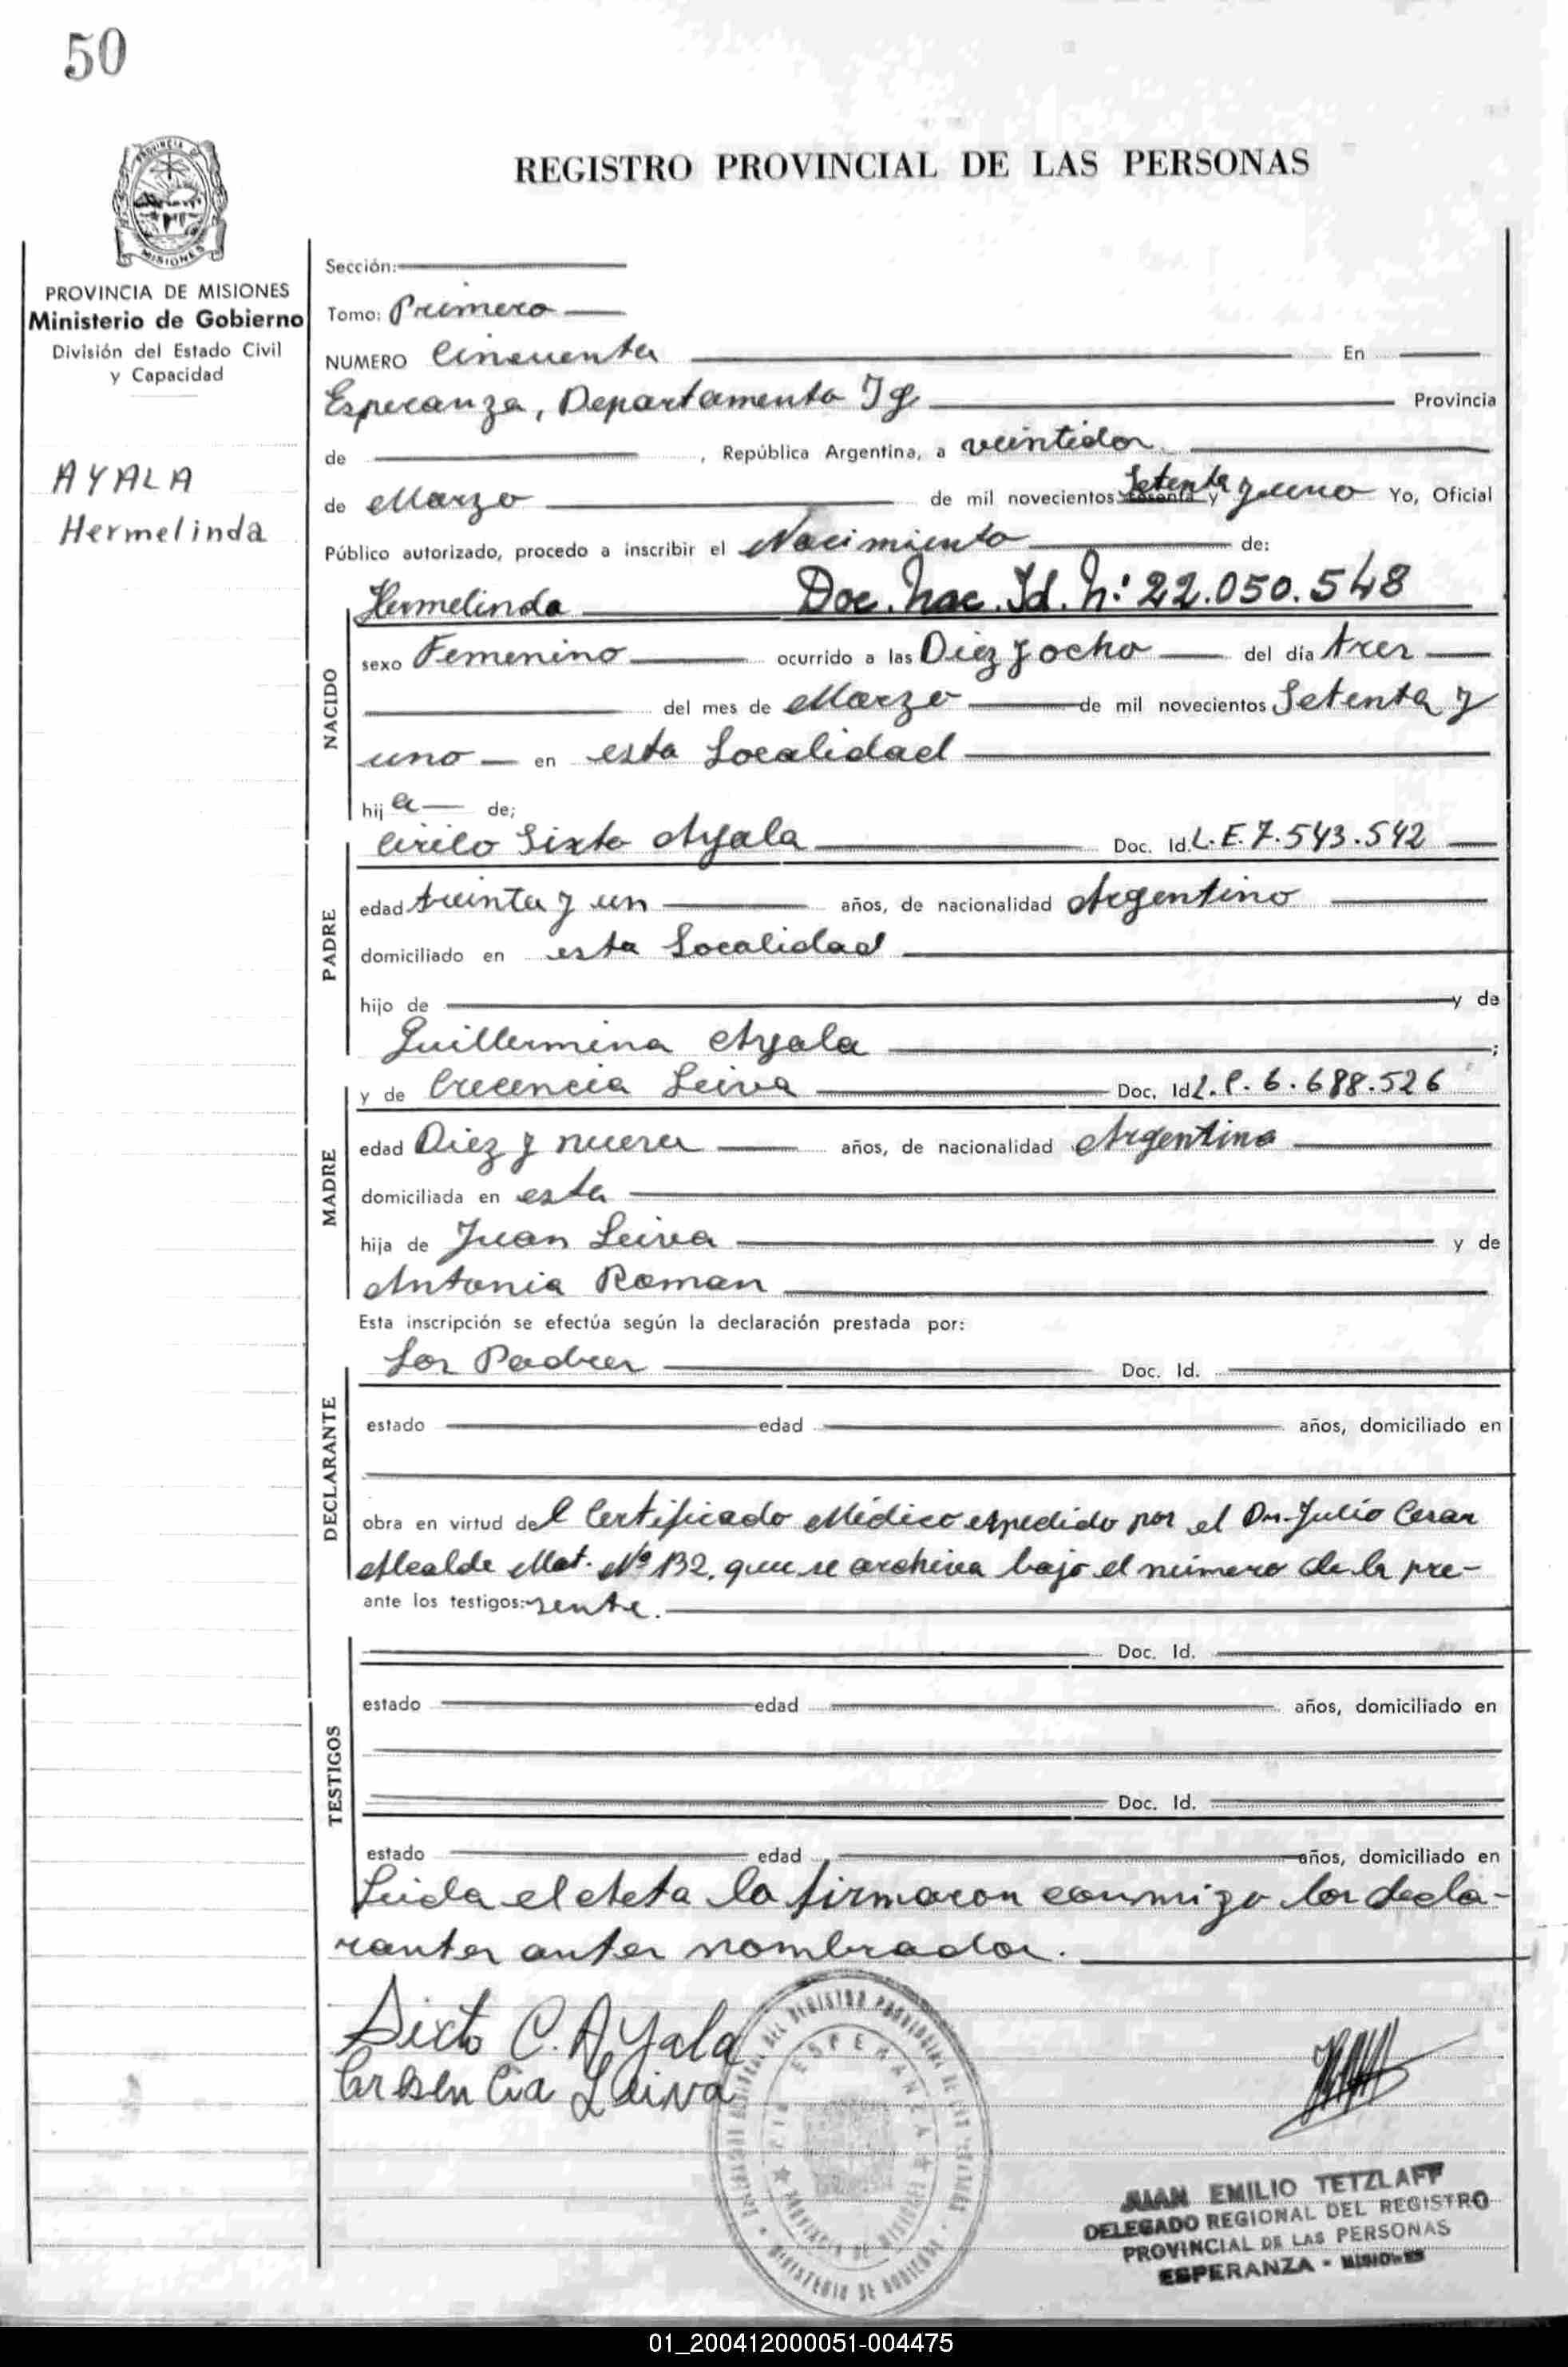 50
REGISTRO PROVINCIAL DE LAS PERSONAS
PROVINCIA DE MISIONES
Ministerio de Gobierno
División del Estado Civil
y Capacidad
AYALA
Hermelinda
Sección:
Tomo: Primero
NUMERO Cincuenta En
Esperanza, Departamento Ig Provincia
de , República Argentina, a veintidos
de Marzo de mil novecientos Setenta y uno Yo, Oficial
Público autorizado, procedo a inscribir el Nacimiento de:
Hermelinda Doc. Nac. Id. N: 22.050.548
NACIDO
sexo Femenino ocurrido a las Diez y ocho del día tres
del mes de Marzo de mil novecientos Setenta y
uno en esta Localidad
hija de;
PADRE
Cirilo Sixto Ayala Doc. Id. L.E. 7.543.542
edad treinta y un años, de nacionalidad Argentino
domiciliado en esta Localidad
hijo de y de
Guillermina Ayala ;
MADRE
y de Crecencia Leiva Doc. Id L.C. 6.688.526
edad Diez y nueve años, de nacionalidad Argentina
domiciliada en esta
hija de Juan Leiva y de
Antonia Roman
Esta inscripción se efectúa según la declaración prestada por:
DECLARANTE
Los Padres Doc. Id.
estado edad años, domiciliado en
obra en virtud del Certificado Médico expedido por el Dr. Julio Cesar
Alcalde Mat. Nº 132, que se archiva bajo el número de la pre-
ante los testigos: sente.
TESTIGOS
Doc. Id.
estado edad años, domiciliado en
Doc. Id.
estado edad años, domiciliado en
Leida el Acta la firmaron conmigo los decla-
rantes antes nombrados.
Sixto C. Ayala
Leiva
ESPERANZA
JUAN EMILIO TETZLAFF
DELEGADO REGIONAL DEL REGISTRO
PROVINCIAL DE LAS PERSONAS
ESPERANZA - MISIONES
01_200412000051-004475